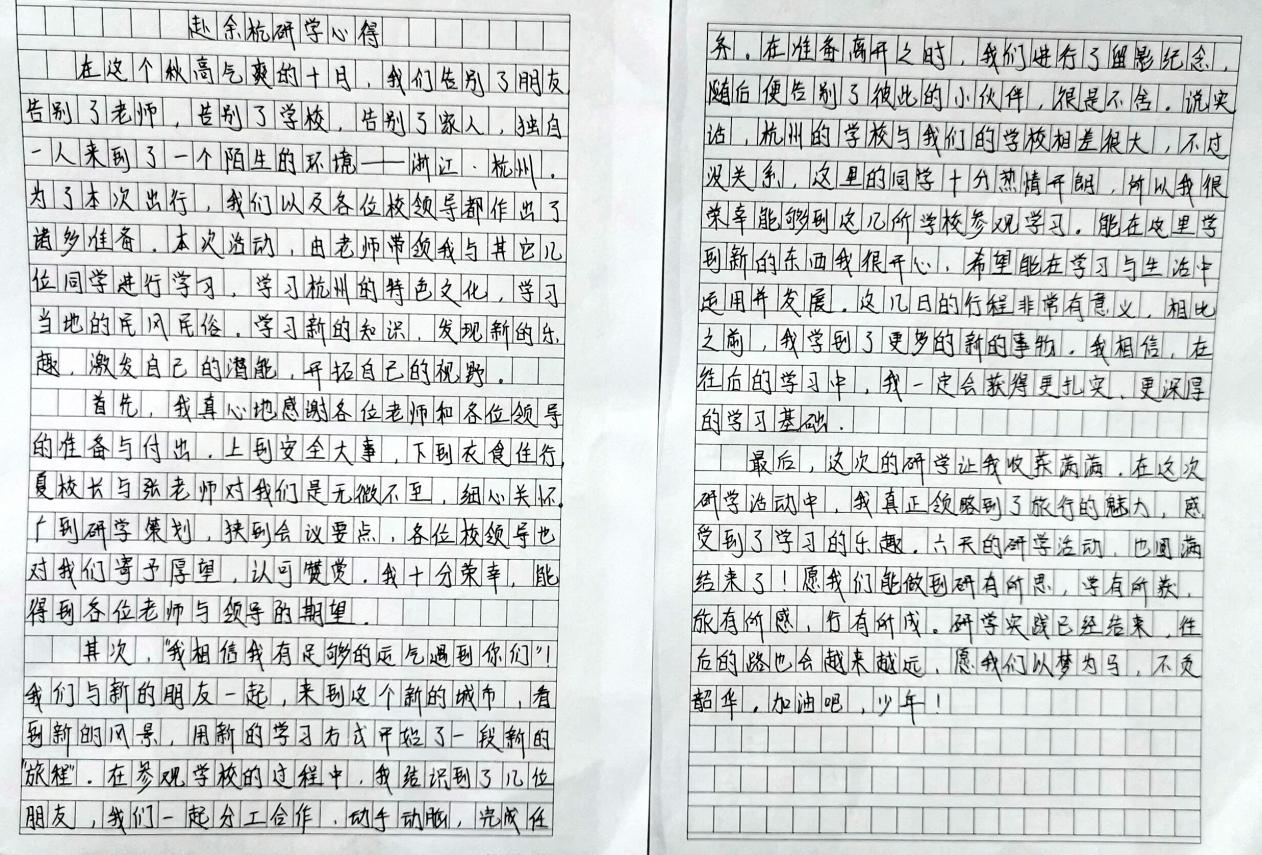 赴余杭研学心得
在这个秋高气爽的十月，我们告别了朋友
告别了老师，告别了学校，告别了家人，独自
一人来到了一个陌生的环境——浙江·杭州。
为了本次出行，我们以及各位校领导都作出了
诸多准备。本次活动，由老师带领我与其它几
位同学进行学习，学习杭州的特色文化，学习
当地的民风民俗。学习新的知识，发现新的乐
趣，激发自己的潜能，开拓自己的视野。
首先，我真心地感谢各位老师和各位领导
的准备与付出，上到安全大事，下到衣食住行，
夏校长与张老师对我们是无微不至，细心关怀。
广到研学策划，狭到会议要点，各位校领导也
对我们寄予厚望，认可赞赏。我十分荣幸，能
得到各位老师与领导的期望。
其次，“我相信我有足够的运气遇到你们”！
我们与新的朋友一起，来到这个新的城市，看
到新的风景，用新的学习方式开始了一段新的
“旅程”。在参观学校的过程中，我结识到了几位
朋友，我们一起分工合作，动手动脑，完成任
务。在准备离开之时，我们进行了留影纪念，
随后便告别了彼此的小伙伴，很是不舍。说实
话，杭州的学校与我们的学校相差很大，不过
没关系，这里的同学十分热情开朗，所以我很
荣幸能够到这几所学校参观学习。能在这里学
到新的东西我很开心，希望能在学习与生活中
运用并发展。这几日的行程非常有意义，相比
之前，我学到了更多的新的事物。我相信，在
往后的学习中，我一定会获得更扎实、更深厚
的学习基础。
最后，这次的研学让我收获满满，在这次
研学活动中，我真正领略到了旅行的魅力，感
受到了学习的乐趣。六天的研学活动，也圆满
结束了！愿我们能做到研有所思，学有所获，
旅有所感，行有所成。研学实践已经结束，往
后的路也会越来越远，愿我们以梦为马，不负
韶华。加油吧，少年！